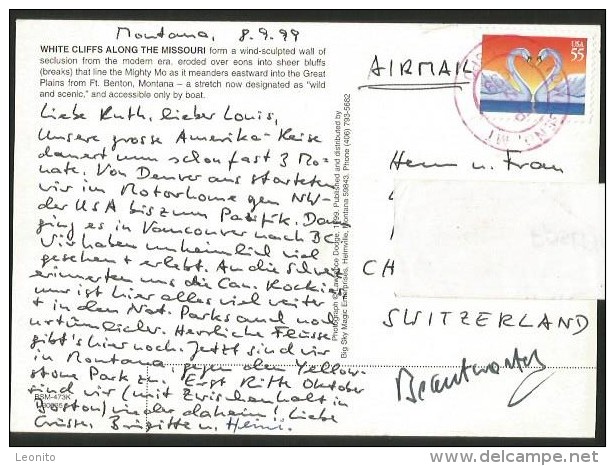 Montana, 8.9.99
WHITE CLIFFS ALONG THE MISSOURI form a wind-sculpted wall of
seclusion from the modern era. eroded over eons into sheer bluffs
(breaks) that line the Mighty Mo as it meanders eastward into the Great
Plains from Ft. Benton, Montana – a stretch now designated as "wild
and scenic," and accessible only by boat.
Liebe Ruth, lieber Louis,
Unsere grosse Amerika-Reise
dauert nun schon fast 3 Mo-
nate. Von Denver aus starteten
wir in Motorhome gen NW-
der USA bis zum Pazifik. Dann
ging es in Vancouver nach BC.
Wir haben unheimlich viel
gesehen + erlebt. An die Schweiz
erinnerten uns die Can. Rockies
nur ist hier alles viel weiter
+ in den Nat. Parks auch noch
urtümlicher. Herrliche Flüsse
gibt's hier noch. Jetzt sind wir
in Montana, gegen den Yellow-
stone Park zu. Erst Mitte Oktober
sind wir (mit Zwischenhalt in
Boston) wieder daheim! Liebe
Grüsse Brigitte u. Heini.
BSM-473K
Photograph © Lawrence Dodge, 1999. Published and distributed by
Big Sky Magic Enterprises, Helmville, Montana 59843. Phone (406) 793-5682
AIRMAIL
USA
55
Herrn u. Frau
CH
SWITZERLAND
Beantwortet
© Leonito
delcampe.net